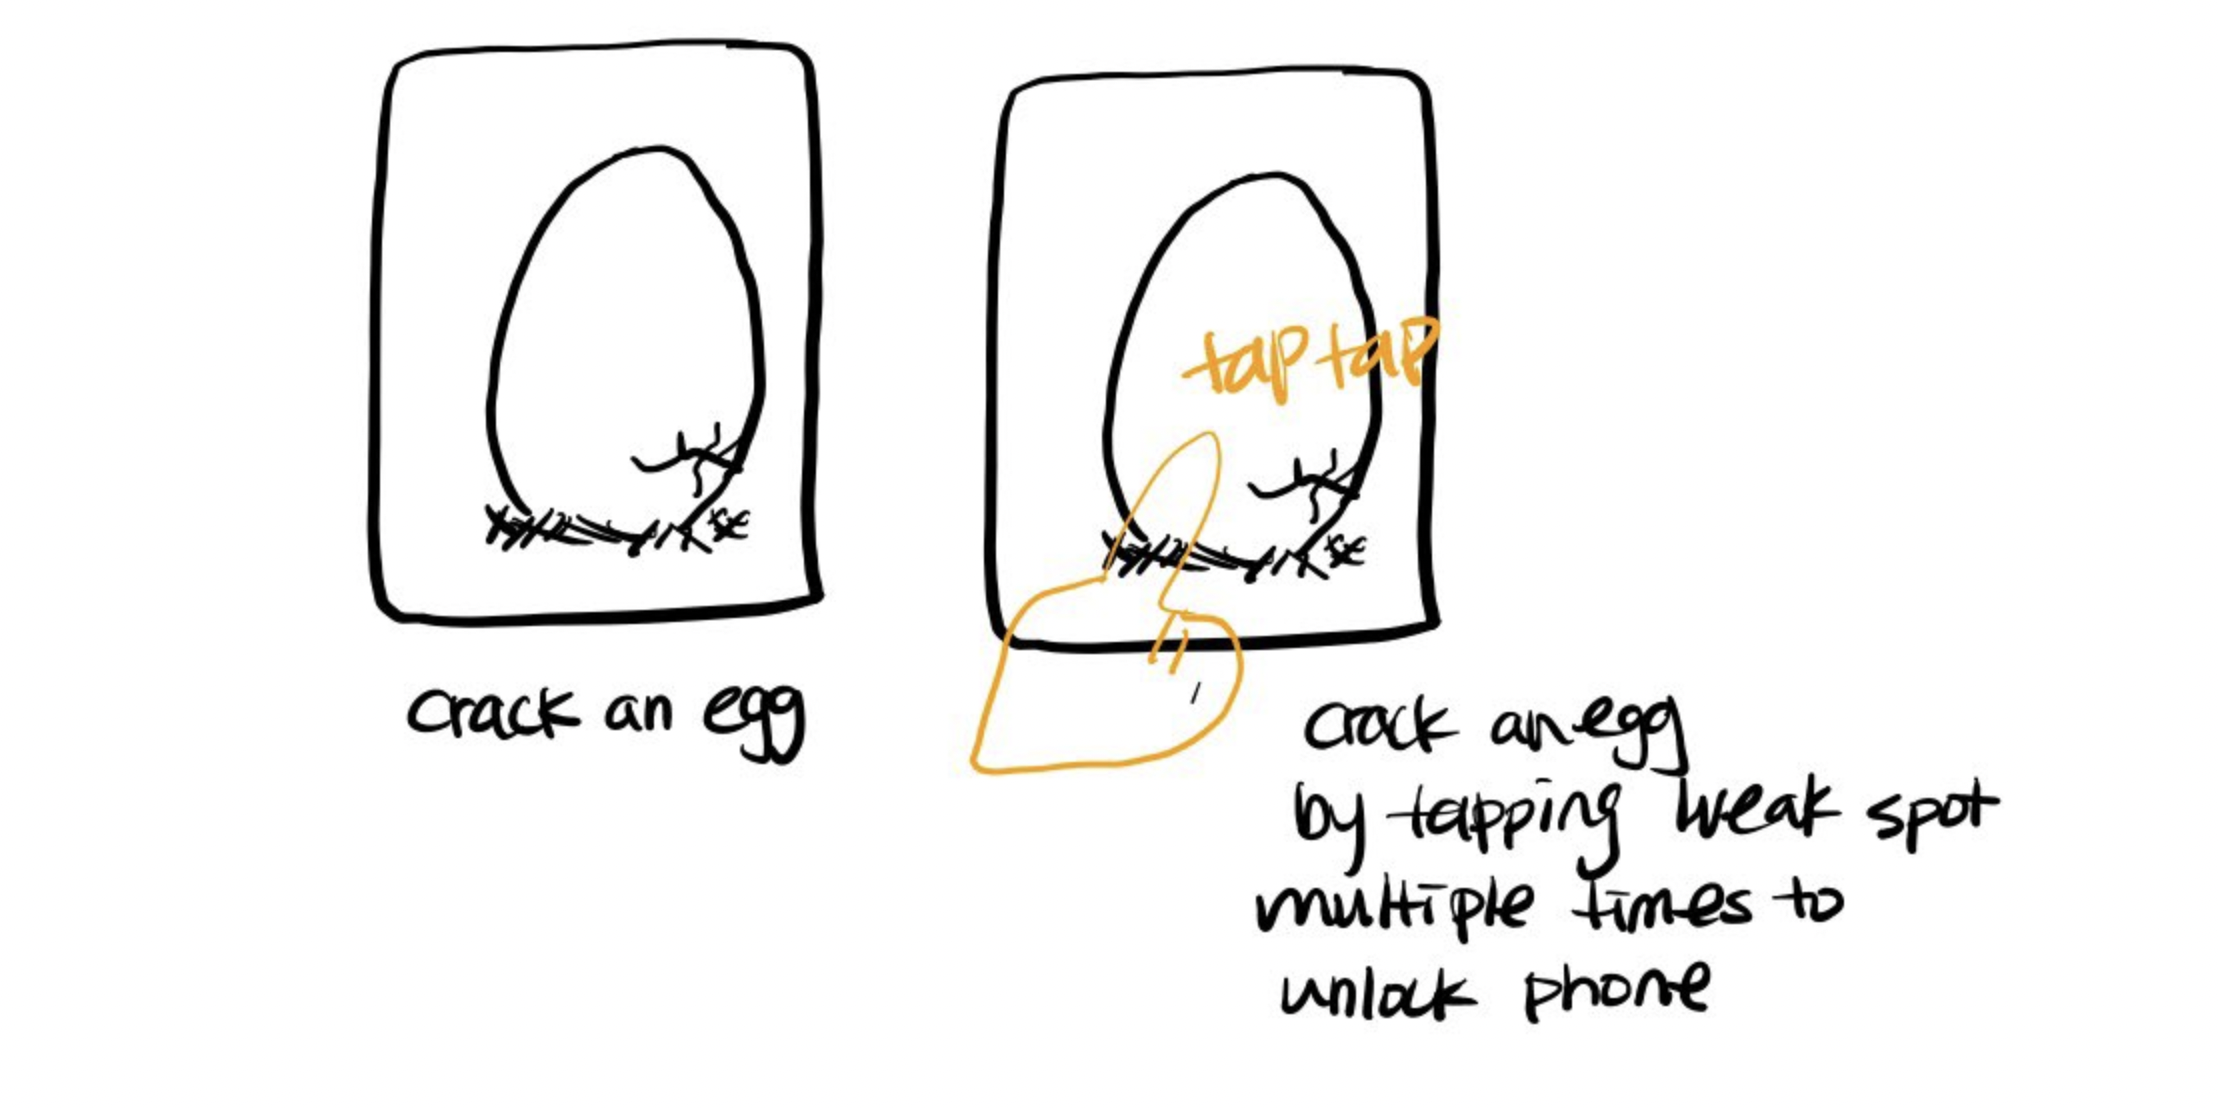 tap tap
crack an egg
crack an egg
by tapping weak spot
multiple times to
unlock phone